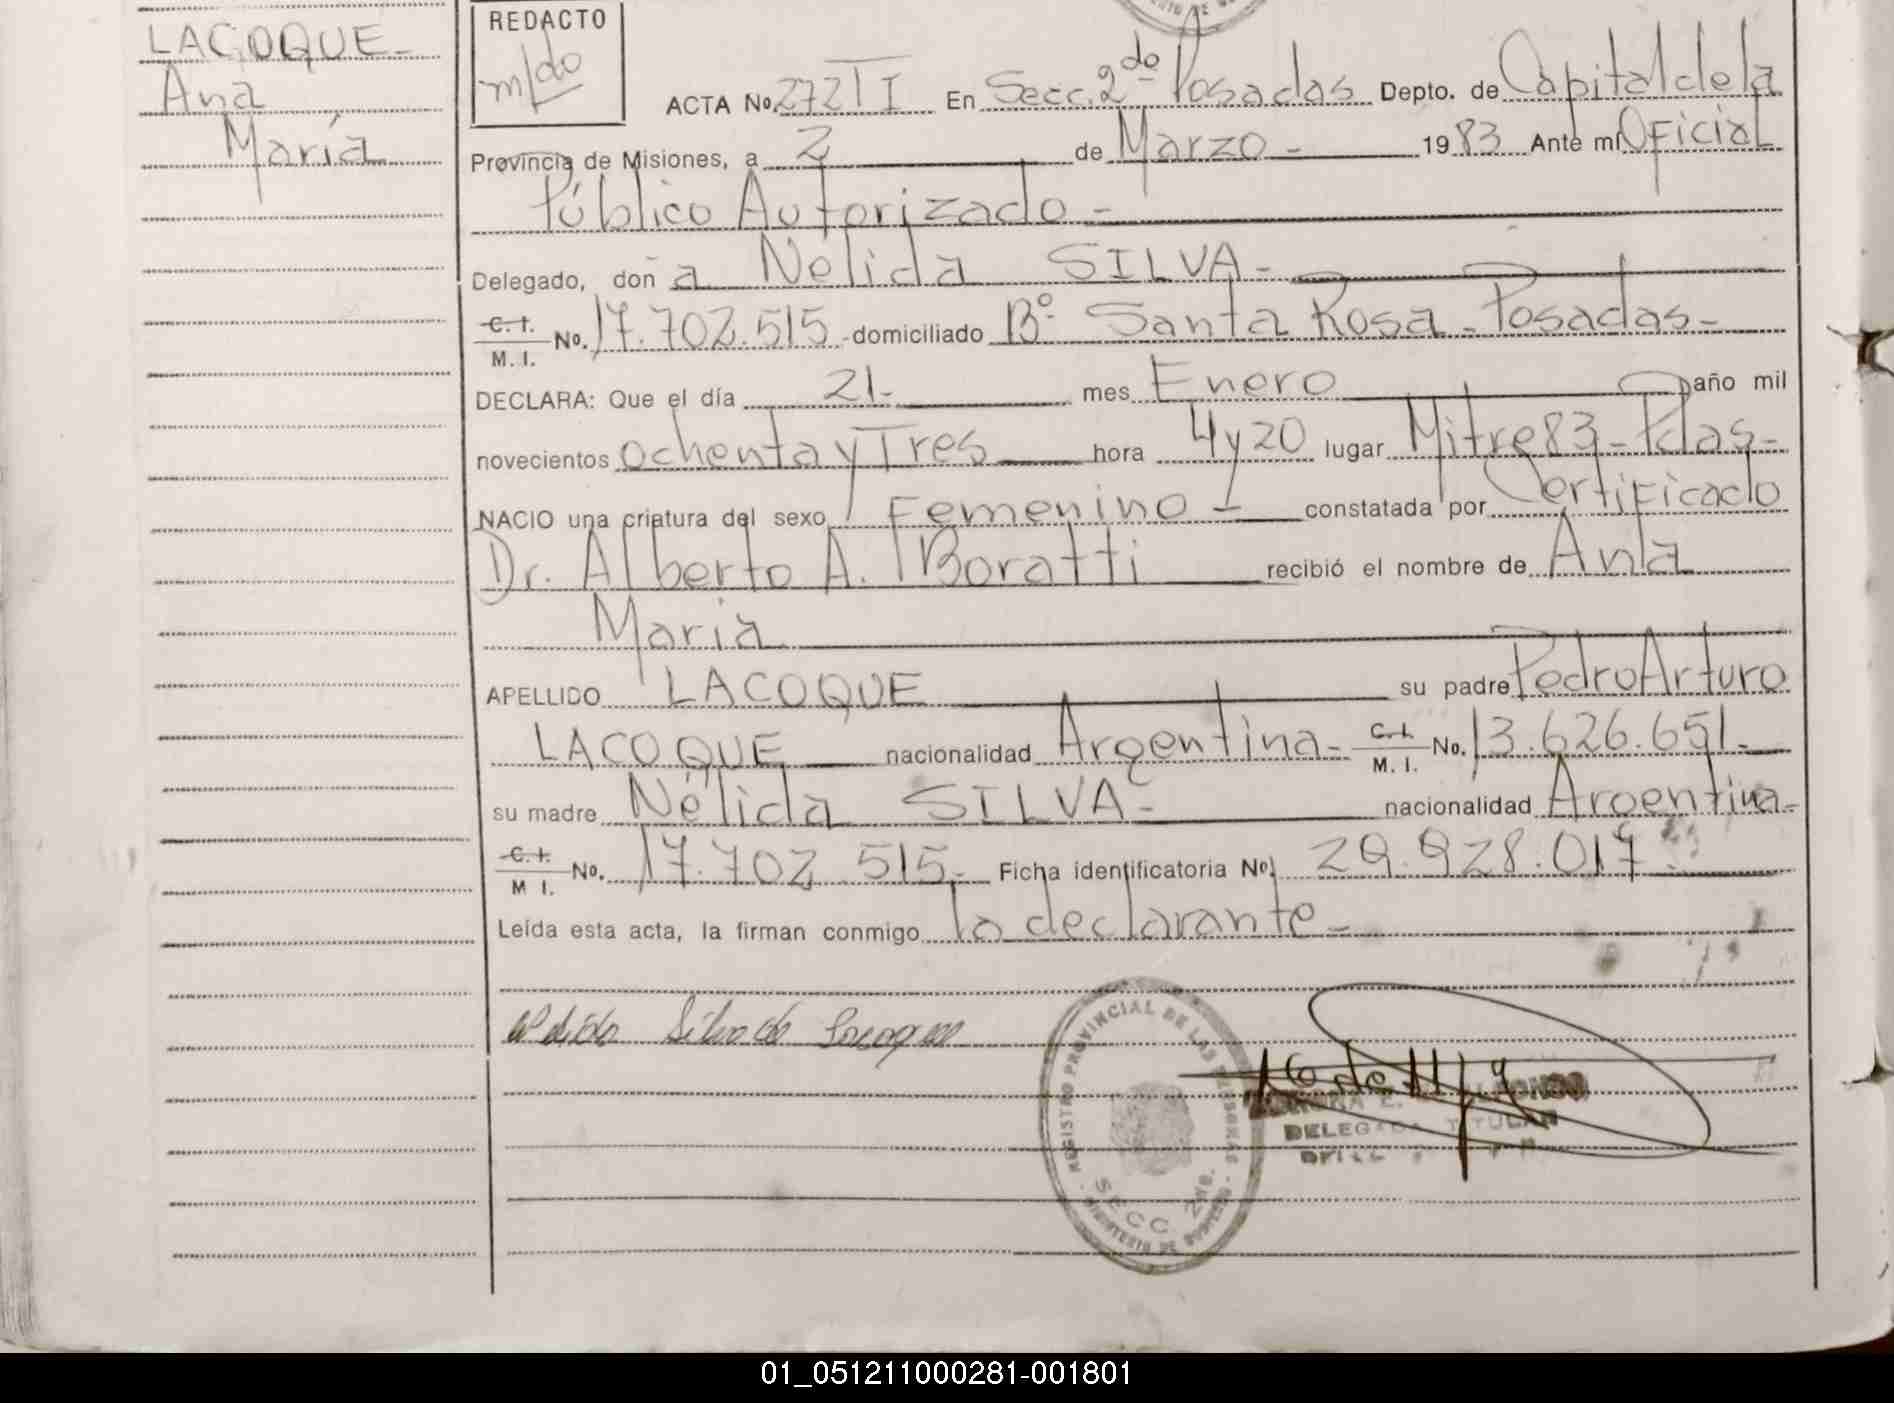 LACOQUE-
Ana
María
REDACTO
m/do
ACTA No. 272 T I En Secc. 2do Posadas Depto. de Capital de la
Provincia de Misiones, a 2 de Marzo - 1983 Ante mí Oficial
Público Autorizado -
Delegado, doña Nelida SILVA-
C. I. / M. I. No. 17.702.515 - domiciliado B° Santa Rosa - Posadas -
DECLARA: Que el día 21- mes Enero año mil
novecientos ochenta y Tres hora 4 y 20 lugar Mitre 83 - Pdas -
NACIO una criatura del sexo Femenino - constatada por Certificado
Dr. Alberto A. Boratti recibió el nombre de Ana
Maria
APELLIDO LACOQUE su padre Pedro Arturo
LACOQUE nacionalidad Argentina - C. I. / M. I. No. 13.626.651-
su madre Nélida SILVA- nacionalidad Argentina-
C. I. / M I. No. 17.702.515- Ficha identificatoria No. 29.928.017
Leída esta acta, la firman conmigo la declarante-
Silva de Lacoque
REGISTRO PROVINCIAL DE LAS PERSONAS
SECC. 2da.
MINISTERIO DE GOBIERNO
DELEGADA TITULAR
01_051211000281-001801